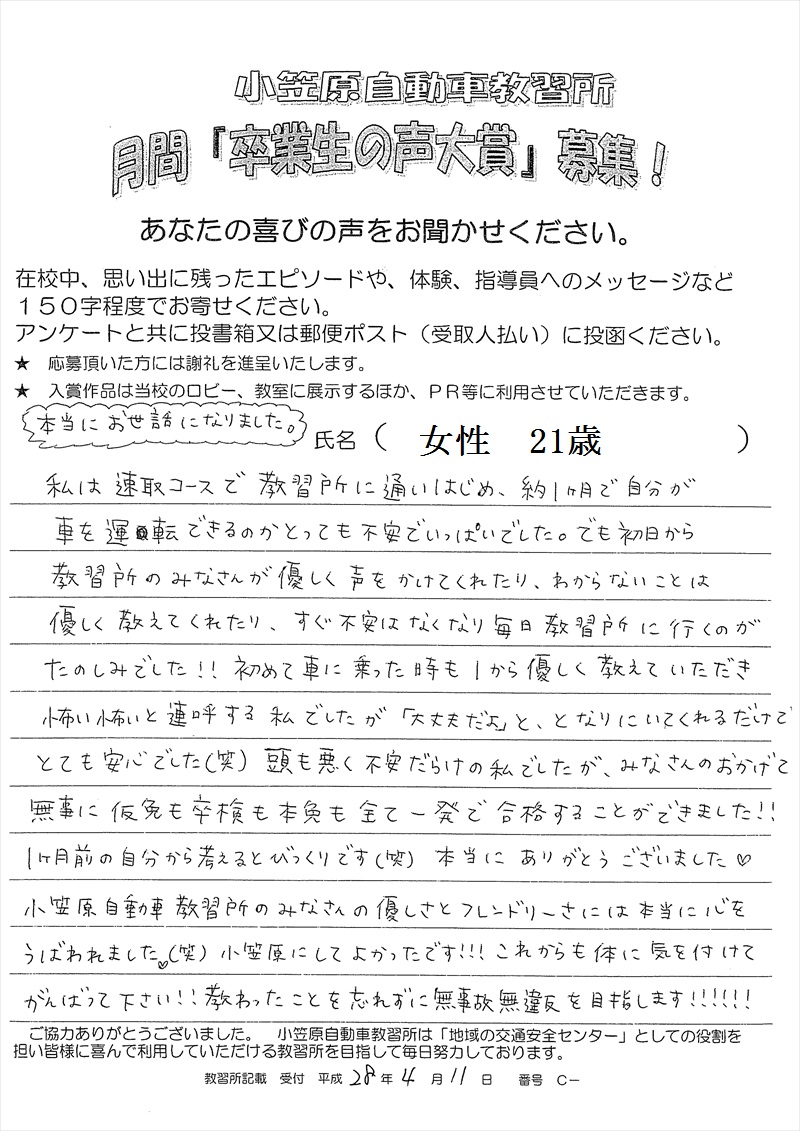 小笠原自動車教習所
月間『卒業生の声大賞』募集！
あなたの喜びの声をお聞かせください。
在校中、思い出に残ったエピソードや、体験、指導員へのメッセージなど
１５０字程度でお寄せください。
アンケートと共に投書箱又は郵便ポスト（受取人払い）に投函ください。
★　応募頂いた方には謝礼を進呈いたします。
★　入賞作品は当校のロビー、教室に展示するほか、ＰＲ等に利用させていただきます。
本当にお世話になりました。
氏名（　女性　21歳　）
私は速取コースで教習所に通いはじめ、約1ヶ月で自分が
車を運転できるのかとっても不安でいっぱいでした。でも初日から
教習所のみなさんが優しく声をかけてくれたり、わからないことは
優しく教えてくれたり、すぐ不安はなくなり毎日教習所に行くのが
たのしみでした!! 初めて車に乗った時も1から優しく教えていただき
怖い怖いと連呼する私でしたが「大丈夫だよ」と、となりにいてくれるだけで
とても安心でした(笑) 頭も悪く不安だらけの私でしたが、みなさんのおかげて
無事に仮免も卒検も本免も全て一発で合格することができました!!
1ヶ月前の自分から考えるとびっくりです(笑) 本当にありがとうございました♡
小笠原自動車教習所のみなさんの優しさとフレンドリーさには本当に心を
うばわれました♡(笑) 小笠原にしてよかったです!!! これからも体に気を付けて
がんばって下さい!! 教わったことを忘れずに無事故無違反を目指します!!!!!!
ご協力ありがとうございました。　小笠原自動車教習所は「地域の交通安全センター」としての役割を
担い皆様に喜んで利用していただける教習所を目指して毎日努力しております。
教習所記載　受付　平成 28 年 4 月 11 日　番号　Ｃ－